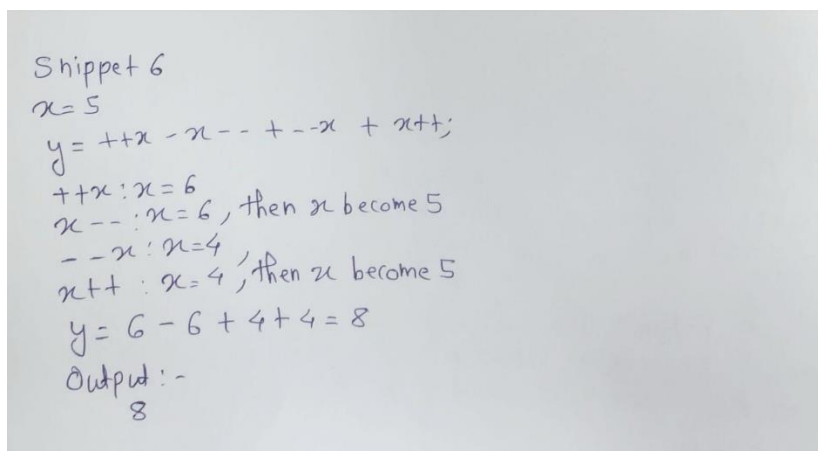 Snippet 6
x= 5
y= ++x - x-- + --x + x++;
++x : x = 6
x-- : x= 6, then x become 5
--x : x=4,
x++ : x= 4, then x become 5
y= 6 - 6 + 4 + 4 = 8
Output :-
8